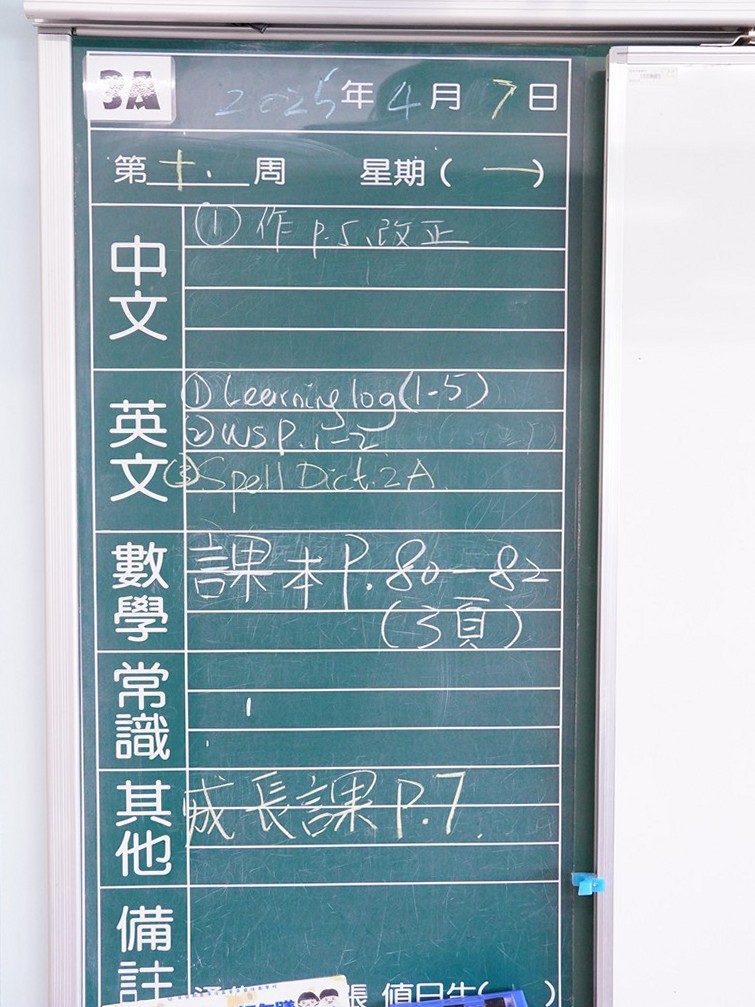 3A 2025年4月7日
第 十 周 星期(一)
中文
① 作 P.5、改正
英文
① Learning log (1-5)
② WS P.1-2
③ Spell Dict. 2A
數學
課本 P.80-82
(3頁)
常識
其他
成長課 P.7
備註
張 值日生( )